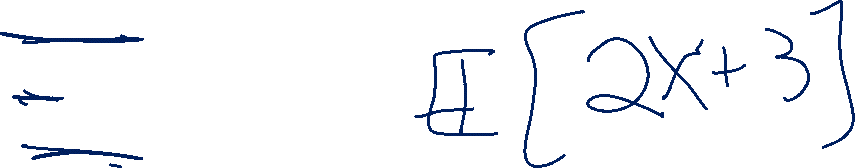 Ξ 𝔼[2x+3]